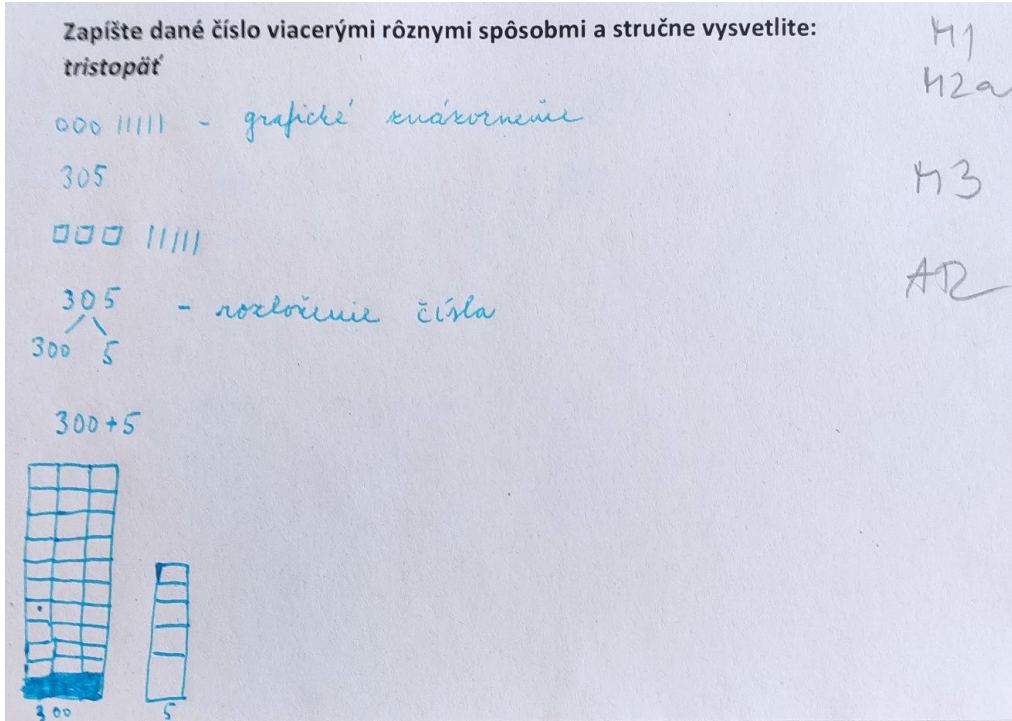 Zapíšte dané číslo viacerými rôznymi spôsobmi a stručne vysvetlite:
tristopäť
M1
M2a
000 ||||| - grafické znázornenie
305
M3
□□□ |||||
AR
305 - rozloženie čísla
300 5
300+5
300 5